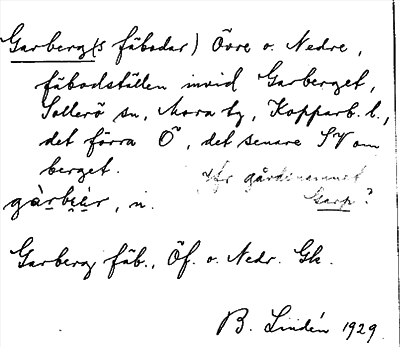 Garberg(s fäbodar) Övre o. Nedre,
fäbodställen invid Garberget,
Sollerö sn, Mora tg, Kopparb. l.,
det förra Ö, det senare SV om
berget.
jfr gårdsnamnet
Garp?
gàr̥bɛ̀r, n.
Garberg, fäb., Öf. o. Nedr. Gk.
B. Lindén 1929.